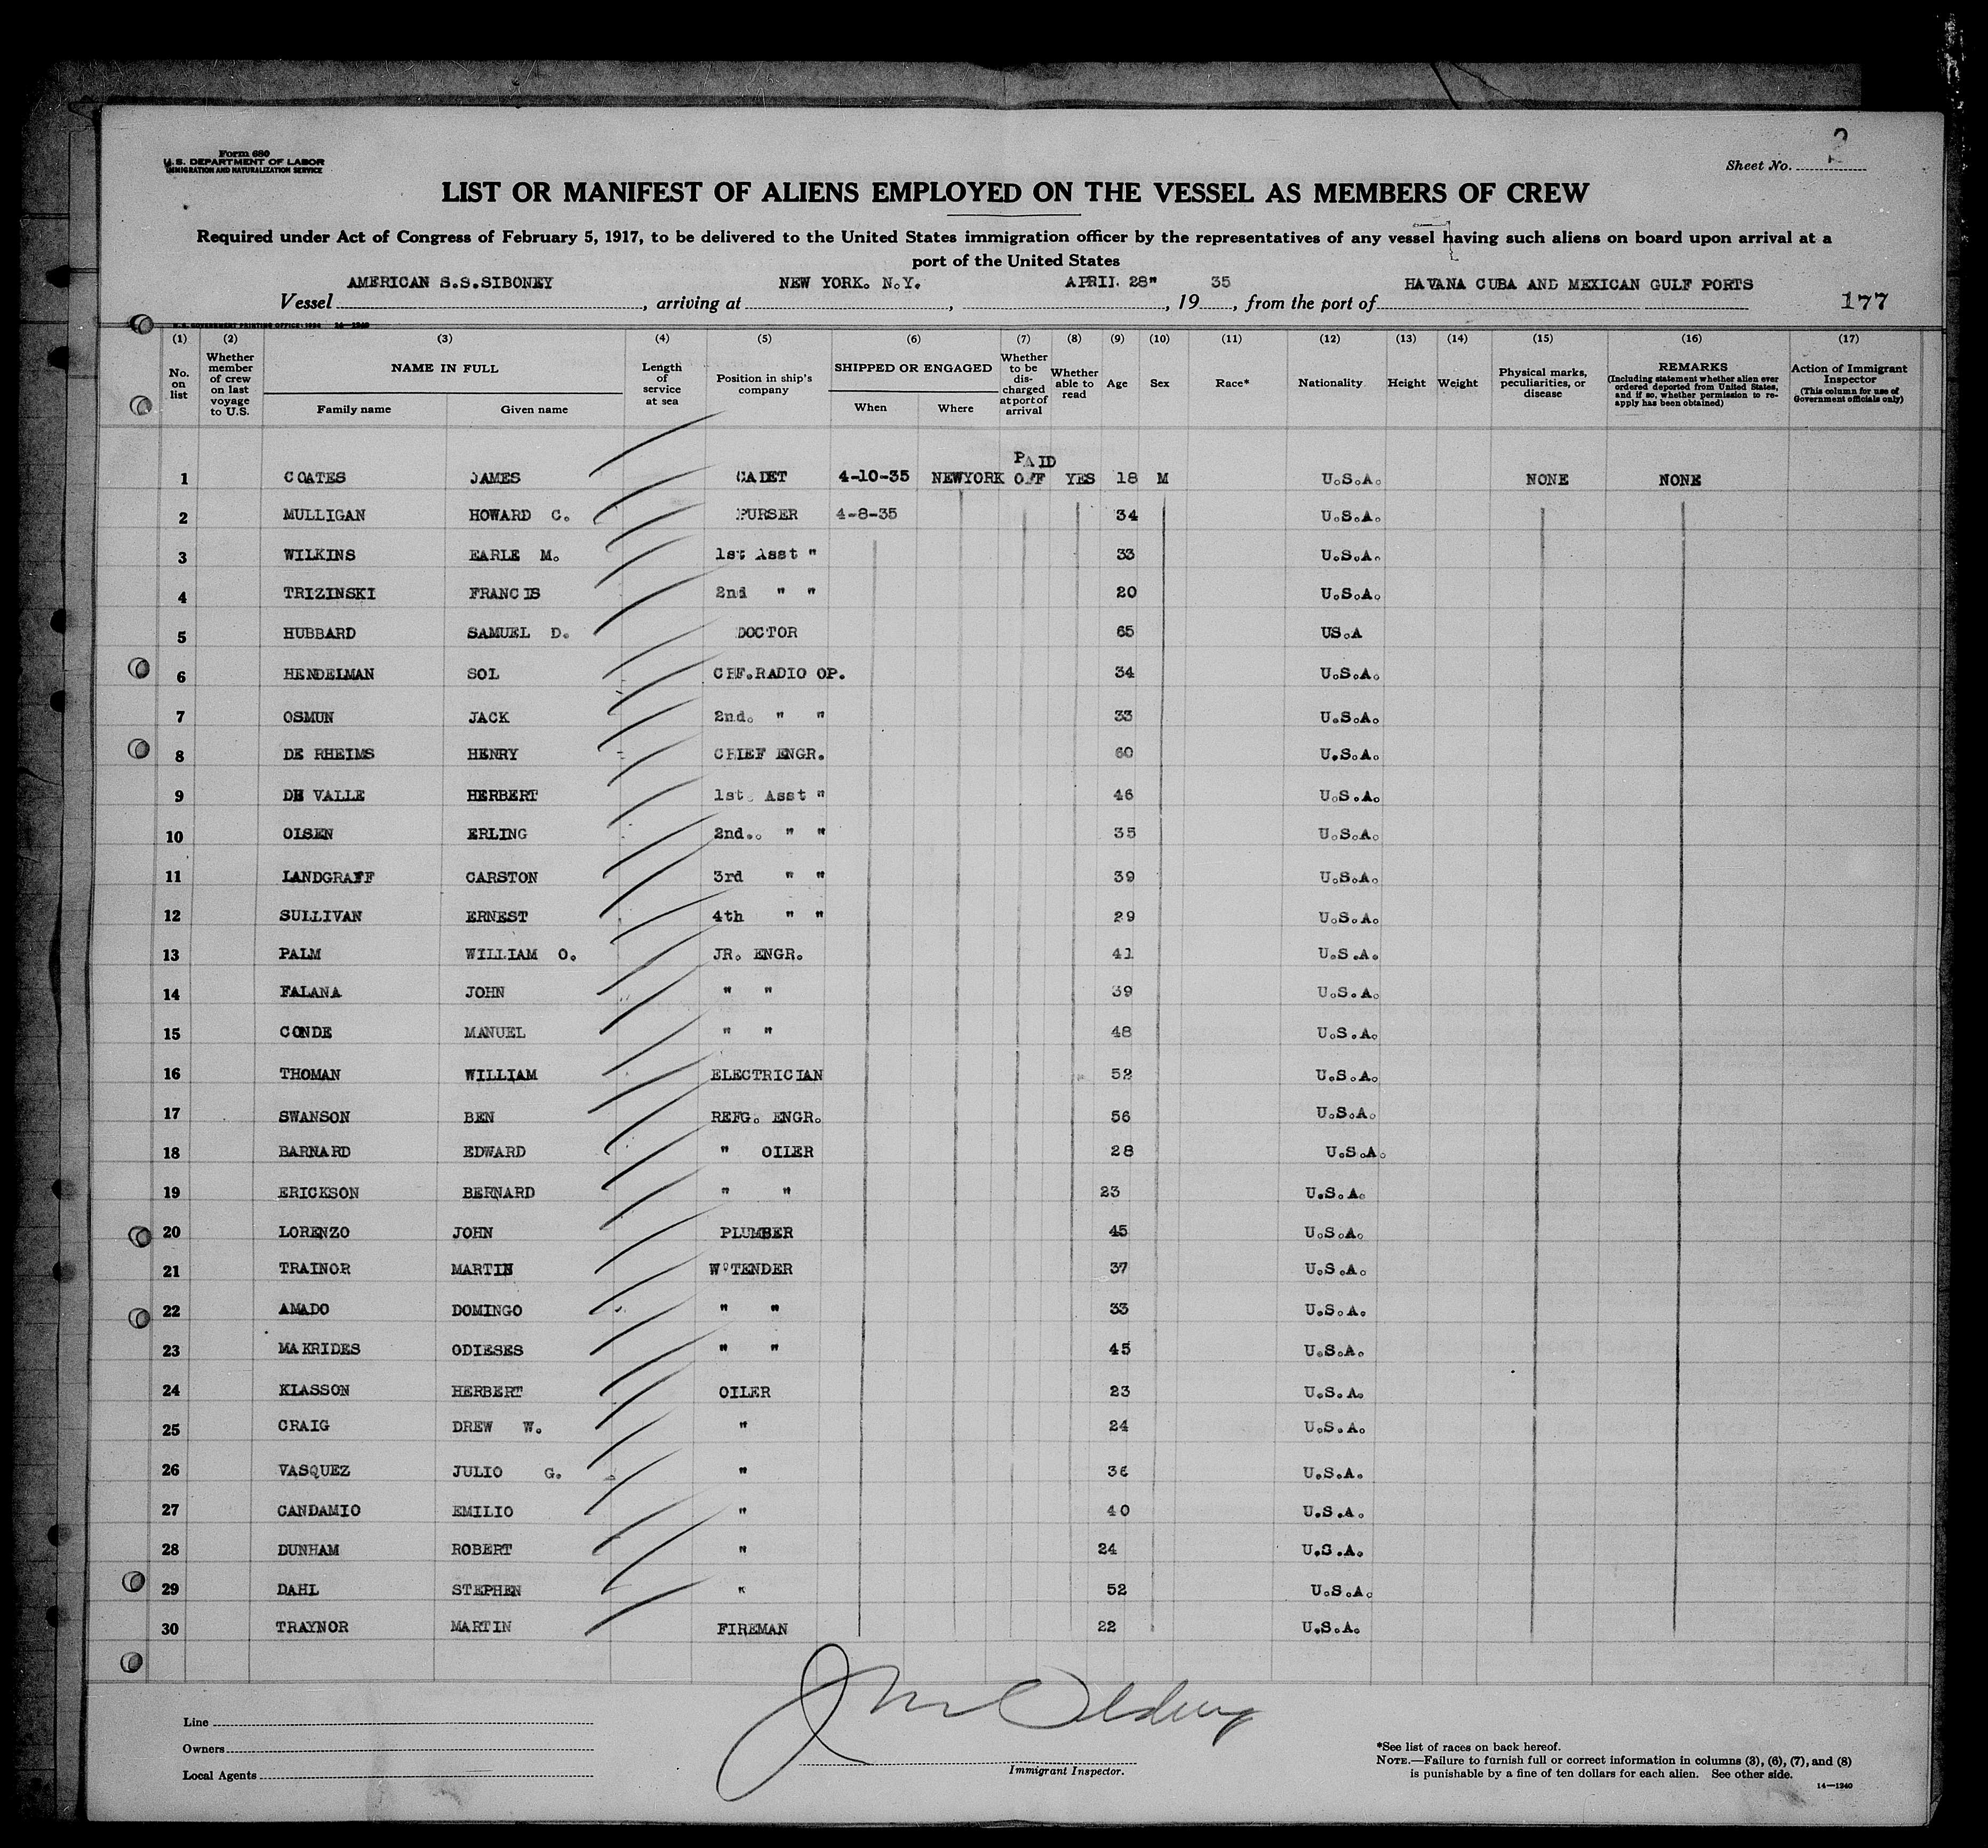 Form 680
U.S. DEPARTMENT OF LABOR
IMMIGRATION AND NATURALIZATION SERVICE
Sheet No. 2
LIST OR MANIFEST OF ALIENS EMPLOYED ON THE VESSEL AS MEMBERS OF CREW
Required under Act of Congress of February 5, 1917, to be delivered to the United States immigration officer by the representatives of any vessel having such aliens on board upon arrival at a
port of the United States
Vessel AMERICAN S.S.SIBONEY, arriving at NEW YORK. N.Y., APRIL 28", 1935, from the port of HAVANA CUBA AND MEXICAN GULF PORTS
177
U. S. GOVERNMENT PRINTING OFFICE: 1934 14—1240
(1) (2) (3) (4) (5) (6) (7) (8) (9) (10) (11) (12) (13) (14) (15) (16) (17)
No. on list
Whether member of crew on last voyage to U.S.
NAME IN FULL
Family name Given name
Length of service at sea
Position in ship's company
SHIPPED OR ENGAGED
When Where
Whether to be discharged at port of arrival
Whether able to read
Age
Sex
Race*
Nationality
Height
Weight
Physical marks, peculiarities, or disease
REMARKS
(Including statement whether alien ever ordered deported from United States, and if so, whether permission to re-apply has been obtained)
Action of Immigrant Inspector
(This column for use of Government officials only)
1 COATES JAMES CADET 4-10-35 NEWYORK PAID OFF YES 18 M U.S.A. NONE NONE
2 MULLIGAN HOWARD C. PURSER 4-8-35 34 U.S.A.
3 WILKINS EARLE M. 1st Asst " 33 U.S.A.
4 TRIZINSKI FRANCIS 2nd " " 20 U.S.A.
5 HUBBARD SAMUEL D. DOCTOR 65 US.A
6 HENDELMAN SOL CHF.RADIO OP. 34 U.S.A.
7 OSMUN JACK 2nd. " " 33 U.S.A.
8 DE RHEIMS HENRY CHIEF ENGR. 60 U.S.A.
9 DE VALLE HERBERT 1st. Asst " 46 U.S.A.
10 OLSEN ERLING 2nd.. " " 35 U.S.A.
11 LANDGRAFF CARSTON 3rd " " 39 U.S.A.
12 SULLIVAN ERNEST 4th " " 29 U.S.A.
13 PALM WILLIAM O. JR. ENGR. 41 U.S.A.
14 FALANA JOHN " " 39 U.S.A.
15 CONDE MANUEL " " 48 U.S.A.
16 THOMAN WILLIAM ELECTRICIAN 52 U.S.A.
17 SWANSON BEN REFG. ENGR. 56 U.S.A.
18 BARNARD EDWARD " OILER 28 U.S.A.
19 ERICKSON BERNARD " " 23 U.S.A.
20 LORENZO JOHN PLUMBER 45 U.S.A.
21 TRAINOR MARTIN W'TENDER 37 U.S.A.
22 AMADO DOMINGO " " 33 U.S.A.
23 MAKRIDES ODIESES " " 45 U.S.A.
24 KLASSON HERBERT OILER 23 U.S.A.
25 CRAIG DREW W. " 24 U.S.A.
26 VASQUEZ JULIO G. " 36 U.S.A.
27 CANDAMIO EMILIO " 40 U.S.A.
28 DUNHAM ROBERT " 24 U.S.A.
29 DAHL STEPHEN " 52 U.S.A.
30 TRAYNOR MARTIN FIREMAN 22 U.S.A.
Line
Owners
Local Agents
Immigrant Inspector.
*See list of races on back hereof.
NOTE.—Failure to furnish full or correct information in columns (3), (6), (7), and (8)
is punishable by a fine of ten dollars for each alien. See other side.
14—1240